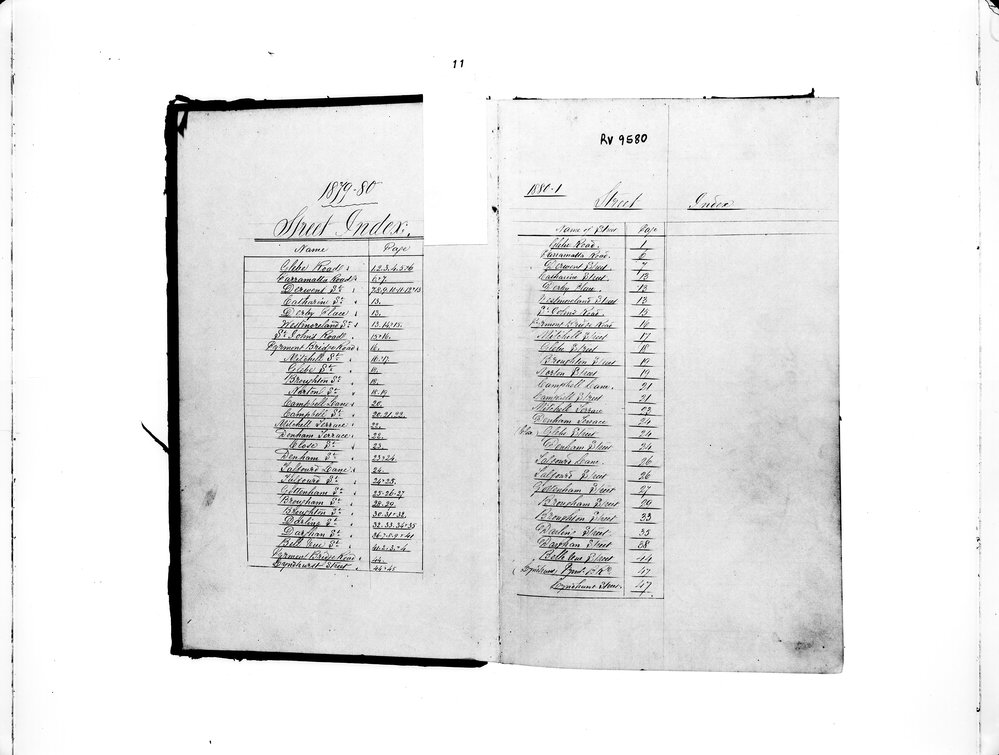 11
1879-80
Street Index.
Name Page
Glebe Road 1.2.3.4.5.6
Parramatta Road 6.7.
Derwent St 7.8.9.10.11.12.13
Catharin St 13.
Derby Place 13.
Westmoreland St 13.14.15.
St Johns Road 15.16.
Pyrmont Bridge Road 16.
Mitchell St 16.17.
Glebe St 18.
Broughton St 18.
Norton St 18.19.
Campbell Lane 20.
Campbell St 20.21.22.
Mitchell Terrace 22.
Denham Terrace 22.
Close St 23.
Denham St 23.24.
Talfourd Lane 24.
Talfourd St 24.25.
Gottenham St 25.26.27
Brougham St 28.29.
Broughton St 30.31.32.
Darling St 32.33.34.35
Darghan St
Bell Vue St
Pyrmont Bridge Road 44.
Lyndhurst Street 44.45
RV 9580
1880-1
Street Index
Name of Street Page
Glebe Road 1
Parramatta Road 6
Derwent Street 7
Catharine Street 13
Derby Place 13
Westmoreland Street 13
St Johns Road 15
Pyrmont Bridge Road 16
Mitchell Street 17
Glebe Street 18
Broughton Street 19
Norton Street 19
Campbell Lane 21
Campbell Street 21
Mitchell Terrace 23
Denham Terrace 24
Glebe Street 24
Denham Street 24
Talfourd Lane 26
Talfourd Street 26
Gottenham Street 27
Brougham Street
Broughton Street 33
Darling Street 35
Darghan Street 38
Bell Vue Street 44
Lyndhurst 47
Lyndhurst Street 47